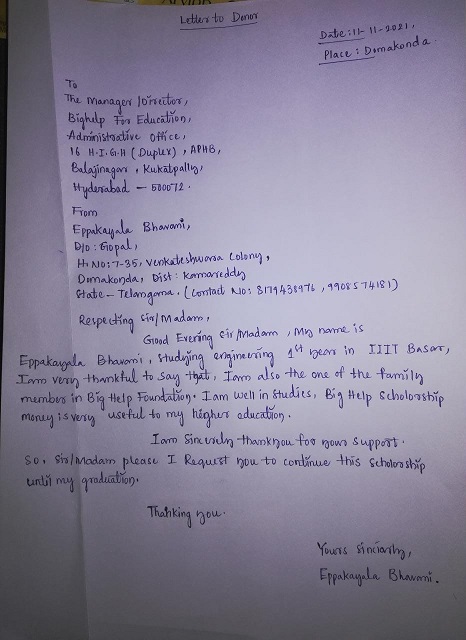 Letter to Donor
Date: 11-11-2021,
Place: Domakonda.
To
The Manager/Director,
Bighelp For Education,
Administrative office,
16 H.I.G.H (Duplex), APHB,
Balajinagar, Kukatpally,
Hyderabad - 500072.
From
Eppakayala Bhavani,
D/o: Gopal,
H.No: 7-35, Venkateshwara Colony,
Domakonda, Dist: Kamareddy
State - Telangana. (Contact No: 8179438976, 9908574181)
Respecting Sir/Madam,
Good Evening Sir/Madam, My name is
Eppakayala Bhavani, studying engineering 1st year in IIIT Basar,
Iam very thankful to say that, Iam also the one of the family
member in Big Help Foundation. Iam well in studies, Big Help Scholorship
money is very useful to my higher education.
Iam sincerely thankyou for your support.
So, Sir/Madam please I Request you to continue this scholorship
until my graduation.
Thanking you.
Yours sinciarly,
Eppakayala Bhavani.